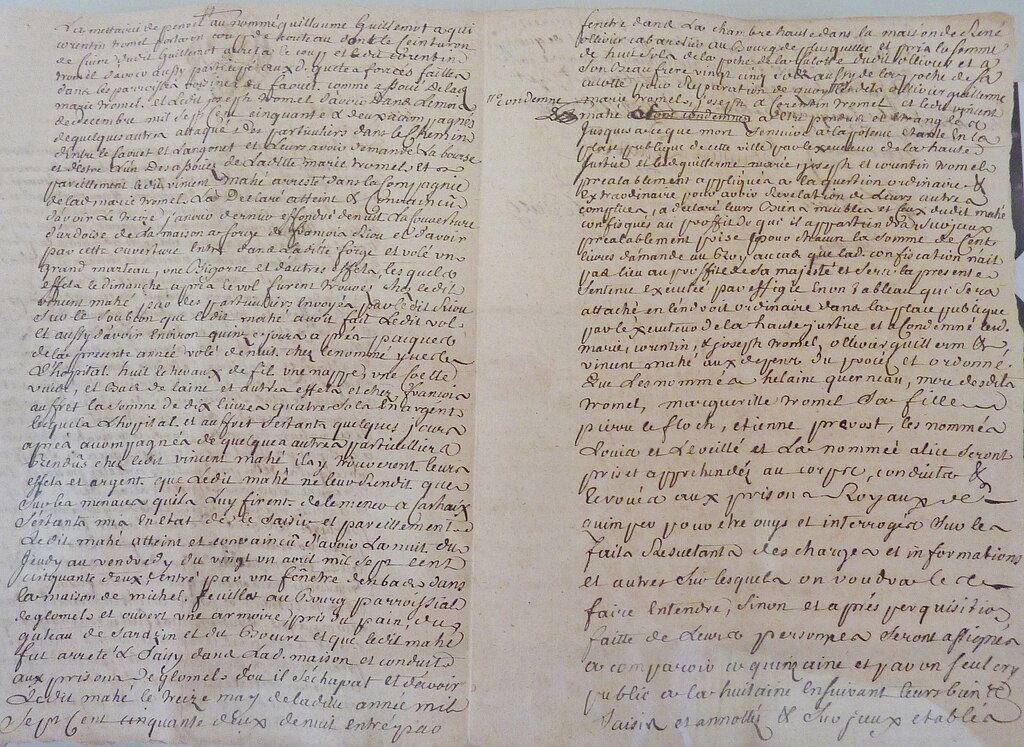 La mettairie de penoet au nommé guillaume Guillemot a qui
corentin tromel porta un coup de couteau dont le seinturon
de cuivre dudit Guillemot arreta le coup et ledit corentin
tromel d'avoir aussy participé aux d. quete a forces faittes
dans les parroisses voisines du faouet, comme aussi Delad
marie tromel, et Ledit joseph tromel d'avoir Dans Lemois
de decembre mil sept cent cinquante & deux accompagnés
de quelques autres attaqué des particuliers dans Le chemin
d'entre le faouet et Langonet et Leurs avoir demandé La bourse
et destre L'un Des associés de Ladite marie tromel, Et
pareillement ledit vincent mahé arresté dans la Compagnie
de lad marie tromel. La Declaré atteint & Convaincu
d'avoir Le treize janvier dernier effondré de nuit La couverture
d'ardoise de La maison a forge de francois Riou et d'avoir
par cette ouverture Entré dans ladite forge et volé un
Grand marteau, une Bigorne et d'autres effets, les quels
effets le dimanche apres le vol furent trouvés chez ledit
vincent mahé par des particuliers Envoyés par Ledit Riou
Sur le soubson que ledit mahé avoit fait Ledit vol
et aussy d'avoir Environ quinze jours apres pacques
de la presente année volé de nuit chez lenommé yves de
L'hopital huit Echevaux de fil, une nappe, une Coette
vuide, et Bas de laine et autres effets et chez francois
auffret la Somme de dix livres quatre sols En argent
lesquels L'hopital et auffret Estants quelques jours
apres accompagnés de quelques autres particulliers
Rendus chez Ledit vincent mahé ilsy trouverent leurs
effets et argent que Ledit mahé ne leur Rendit que
Sur les menaces quils Luy firent de le mener a Carhaix
Sestants mis En Etat de le Saisir et pareillement
Ledit mahé atteint et convaincû d'avoir La nuit du
jeudy au vendredy du vingt un avril mil sept cent
cinquante deux Entré par une fenêtre d'enbas dans
la maison de michel feuillas au Bourg parroissial
de glomels et ouvert une armoire, pris du pain, du
gateau de Sarazin et du Boeure et que ledit mahé
fut arreté & Saisy dans Lad. maison et conduit
aux prisons de glomels d'ou il Sechapat et d'avoir
Ledit mahé le treize may de ladite année mil
Sept Cent cinquante deux de nuit entré par
fenetre dans La chambre haute dans la maison de René
ollivier cabaretier au Bourg de plusquellec et pris la somme
de huit Sols de la poche de la culotte dudit ollivier et a
Son Beau frere vingt cinq Sols aussy de la poche de sa
culotte pour Reparation de quoy lesdits ollivier guillerme
marie tromel, joseph & Corentin tromel et ledit vincent
nous Condamne
mahé sont condamnés a Estre pendus et Etranglés
jusques a ce que mort Sensuive a la potence Etante en la
place publique de cette ville par le executeur de la haute
justice et lesdits guillerme marie, joseph et corentin tromel
prealablement appliqués a la question ordinaire &
Extraordinaire pour avoir Revelation de Leurs autres
complices, a declaré leurs Biens meubles et ceux dudit mahé
confisqués au proffit de qui il appartiendra sur iceux
prealablement prise pour chacun la somme de Cent
livres damande au Roy, au cas que lad. confiscation nait
pas lieu au proffit de Sa majesté et Sera la presente
Sentence executée par effigie En un Tableau qui sera
attaché en lendroit ordinaire dans La place publique
par le executeur de la haute justice et a Condamné lesd.
marie, corentin, & joseph tromel, ollivier guillerm &
vincent mahé aux depens du procés et ordonné,
Que Les nommés helaine querneau, mere desdits
tromel, marguerite tromel sa fille
pierre le floch, etienne prevost, les nommés
Louis et Léveillé et La nommée alice seront
pris et apprehendés au corps, conduits &
Ecroués aux prisons Royaux de
quimper pour etre ouys et interrogés sur les
faits Resultants des charges et informations
et autres sur lesquels on voudra les
faire Entendre, Sinon et aprés perquisition
faitte de Leurs personnes seront assignés
a comparoir a quinzaine et par un seul cry
public a la huitaine Ensuivant leurs biens
Saisis et annottés & sur iceux etablis